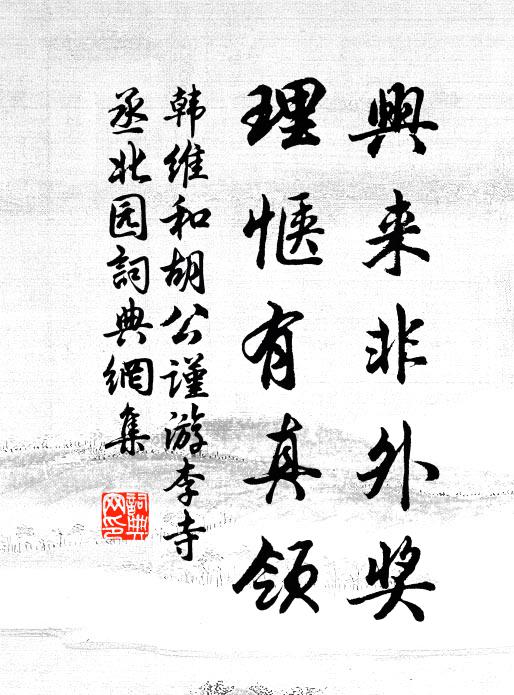 興来非外奖
理惬有真领
韩维和胡公谨游李寺
丞北园詞典網集
詞典
网印